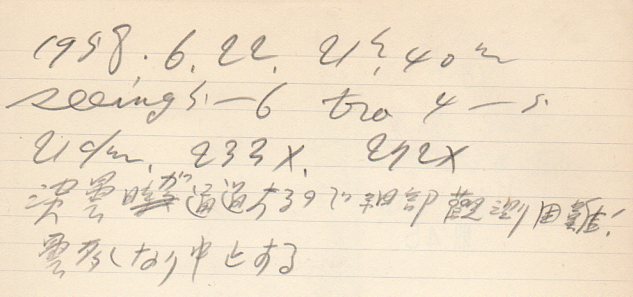 1958. 6. 22. 21h 40m
seeing 5—6 tra 4—5
21cm. 233X. 292X
淡雲が通過するので細部観測困難.
雲多くなり中止する